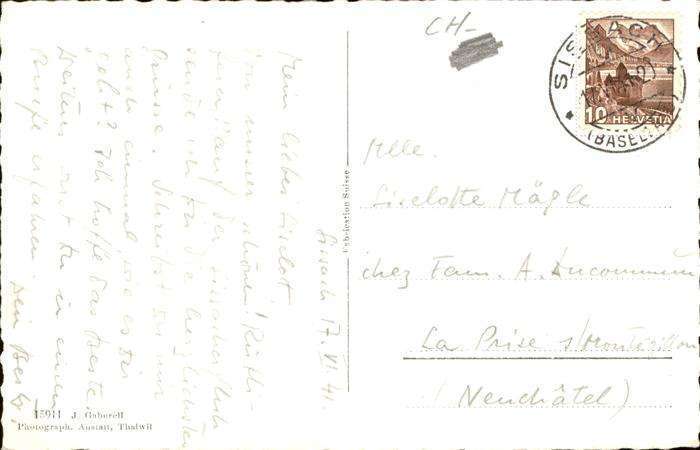 CH-
SISSACH
(BASEL
10 HELVETIA
Mlle.
Liselotte Mägle
chez Fam. A. Ducommun
La Prise s/Montézillon
(Neuchâtel)
Fabrication Suisse
Sissach 17. VI. 41.
Mein liebes Liselott!
Von unserer schönen Rütli-
auf der
sende ich Dir die herzlichsten
Grüsse. Schreibst Du mir
auch einmal, wie es Dir
geht? Ich hoffe das Beste.
Weiteres wirst Du in einem
Briefe erfahren. Dein
15911 J. Gaberell
Photograph. Anstalt, Thalwil